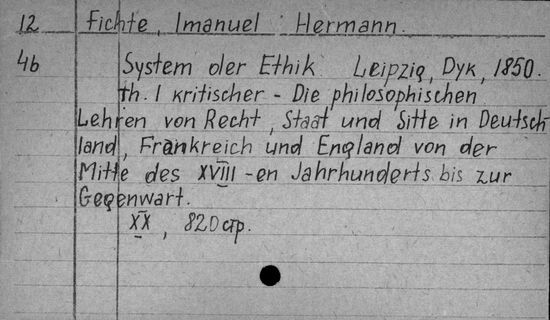 12 Fichte, Imanuel Hermann.
46 System der Ethik Leipzig, Dyk, 1850.
th. 1 kritischer - Die philosophischen
Lehren von Recht, Staat und Sitte in Deutsch-
land, Frankreich und England von der
Mitte des XVIII-en Jahrhunderts bis zur
Gegenwart.
XX, 820 стр.